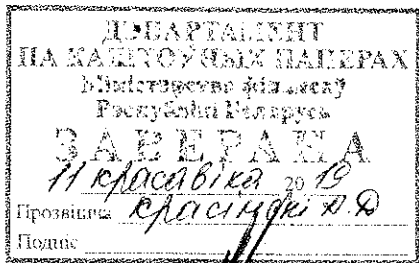 ДЭПАРТАМЕНТ
ПА КАШТОЎНЫХ ПАПЕРАХ
Міністэрства фінансаў
Рэспублікі Беларусь
ЗАВЕРАНА
11 красавіка 2019
Прозвішча
Подпіс